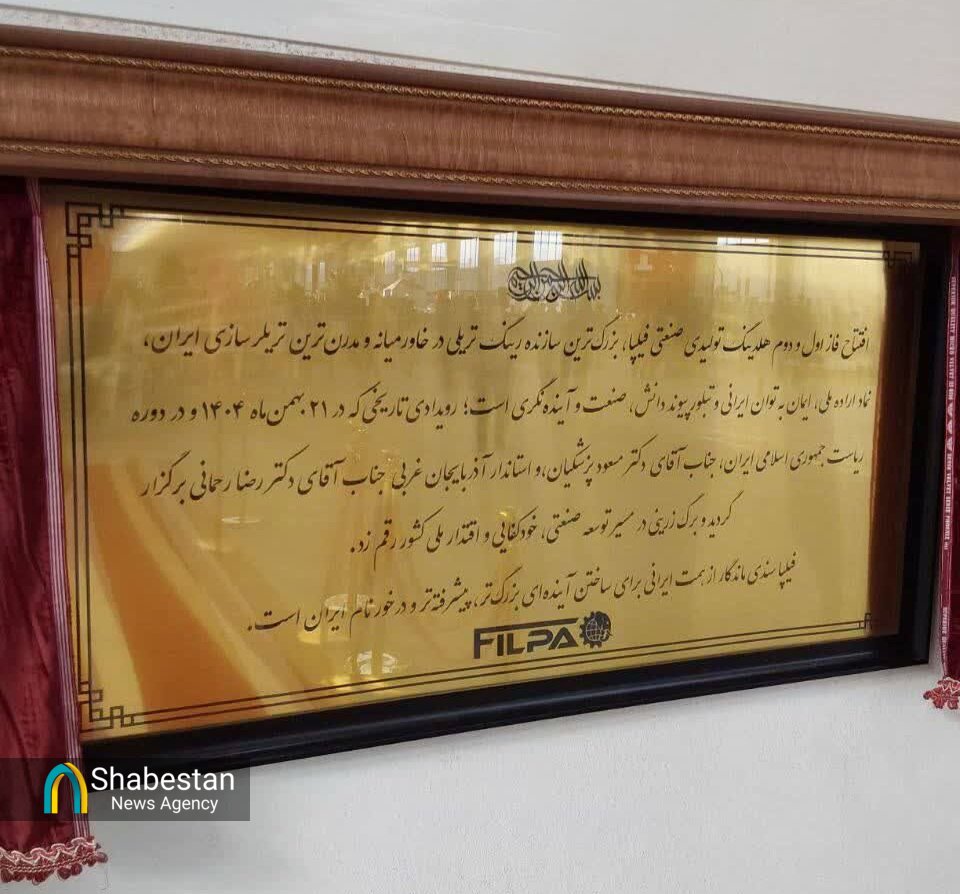 بسم الله الرحمن الرحیم
افتتاح فاز اول و دوم هلدینگ تولیدی صنعتی فیلپا، بزرگ‌ترین سازنده رینگ تریلی در خاورمیانه و مدرن‌ترین تریلر سازی ایران،
نماد اراده ملی، ایمان به توان ایرانی و تبلور پیوند دانش، صنعت و آینده‌نگری است؛ رویدادی تاریخی که در ۲۱ بهمن‌ماه ۱۴۰۴ و در دوره
ریاست جمهوری اسلامی ایران، جناب آقای دکتر مسعود پزشکیان، و استاندار آذربایجان غربی جناب آقای دکتر رضا رحمانی برگزار
گردید و برگ زرینی در مسیر توسعه صنعتی، خودکفایی و اقتدار ملی کشور رقم زد.
فیلپا سندی ماندگار از همت ایرانی برای ساختن آینده‌ای بزرگ‌تر، پیشرفته‌تر و درخور نام ایران است.
FILPA
Shabestan
News Agency